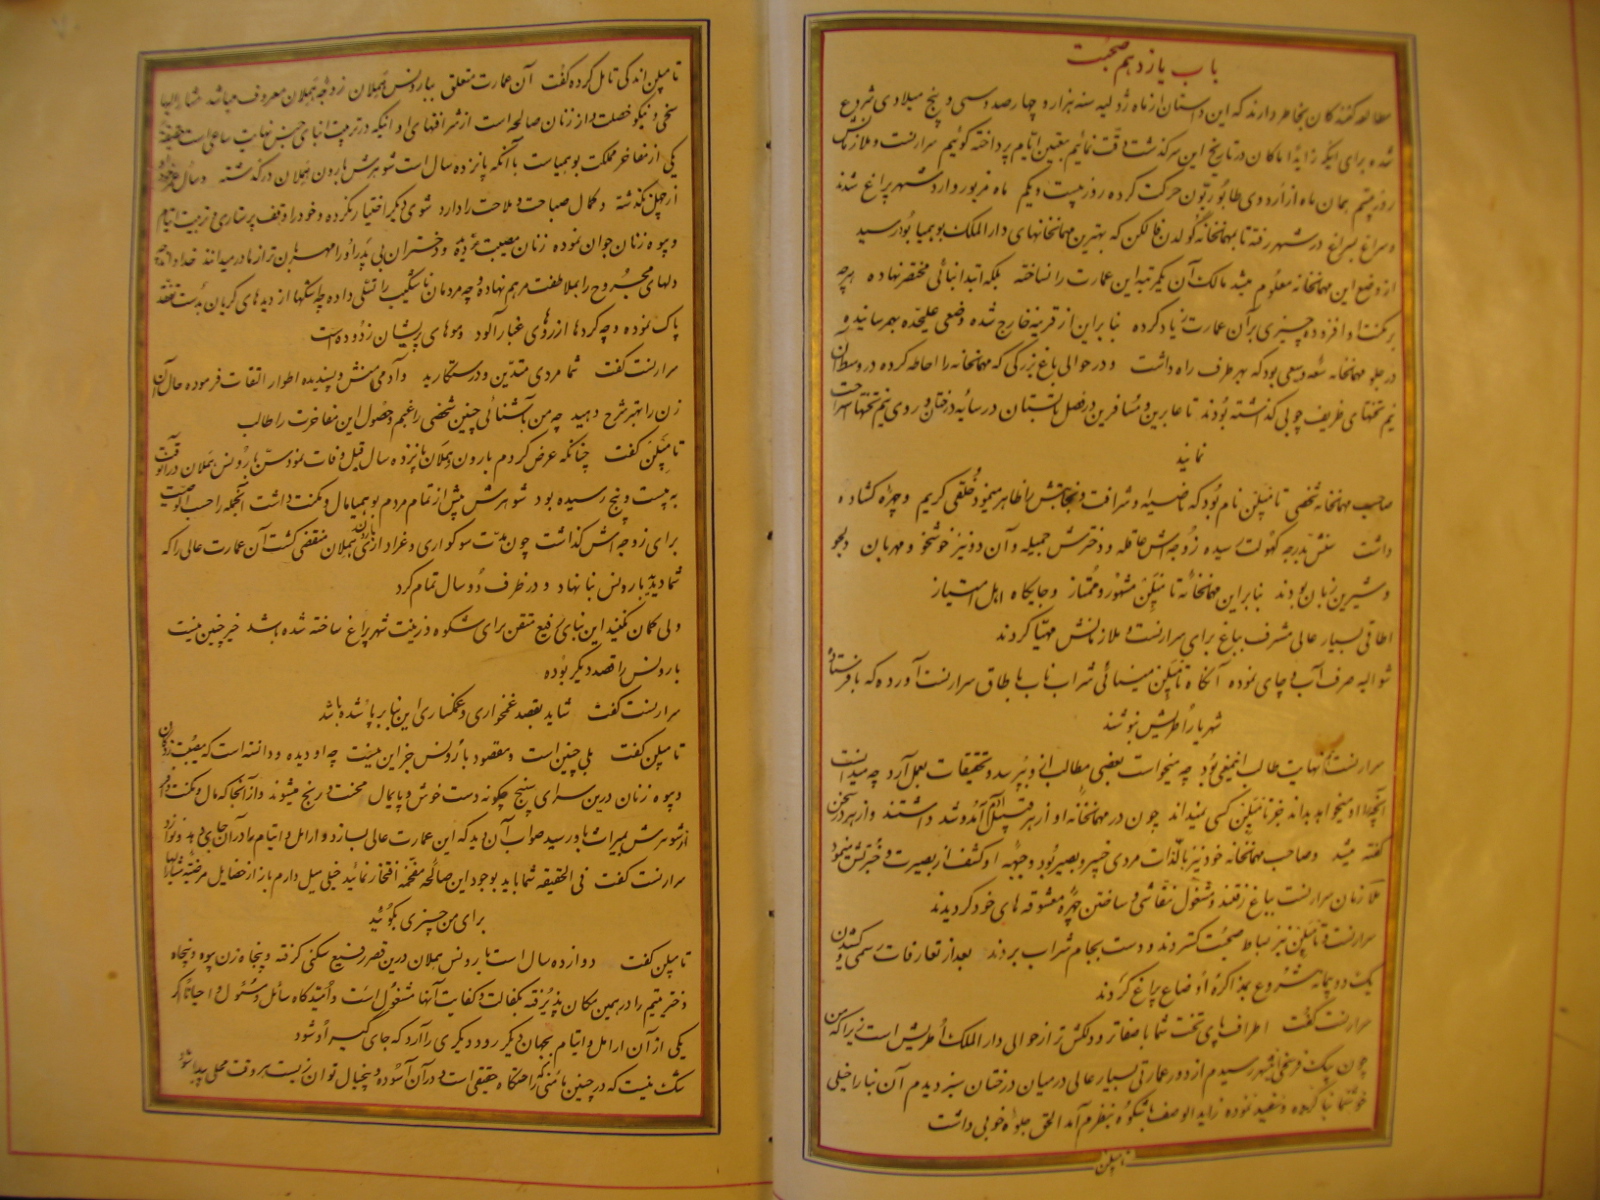 باب یازدهم صحبت
مطالعه کنندگان بخاطر دارند که این داستان از ماه ژولیه سنه هزار و چهار صد و سی و پنج میلادی شروع
شده برای اینکه زیاد اماکان در تاریخ این سرگذشت دقت نمائیم بتعیین ایام پرداخته گوئیم سرارنست و ملازمانش
روز بیستم همان ماه از اردوی طابوریتون حرکت کرده روز بیست و یکم ماه مزبور وارد شهر پراغ شدند
و سراغ بسراغ در شهر رفته تا بمهمانخانه گولدن فالکن که بهترین مهمانخانهای دار الملک بوهمیا بود رسید
از وضع این مهمانخانه معلوم میشد مالک آن یکمرتبه این عمارت را نساخته بلکه ابتدا بنائی مختصر نهاده هر چه
بر مکنت او افزوده چیزی بر آن عمارت زیاد کرده بنابراین از قرینه خارج شده وضعی علیحده بهمرسانیده
در جلو مهمانخانه وسیعی بود که بهر طرف راه داشت و در حوالی باغ بزرگی که مهمانخانه را احاطه کرده در وسط آن
نیم تختهای ظریف چوبی گذاشته بودند تا عابرین و مسافرین در فصل تابستان در سایه درختان و روی نیم تختها استراحت
نمایند
صاحب مهمانخانه شخصی تامپلن نام بود که ناصیه او شرافت و نجابتش را ظاهر مینمود خلقی کریم و چهره گشاده
داشت سنش بدرجه کهولت رسیده زوجه اش عاقله و دخترش جمیله و آن دو نیز خوشخو و مهربان دلجو
و شیرین زبان بودند بنابراین مهمانخانه تامپلن مشهور و ممتاز و جایگاه اهل امتیاز
اطاقی بسیار عالی مشرف بباغ برای سرارنست و ملازمانش مهیا کردند
شوالیه صرف آب و چای نموده آنگاه تامپلن مینائی شراب ناب باطاق سرارنست آورده که با فرستاده
شهریار اطریش بنوشند
سرارنست نهایت طالب اینمعنی بود چه میخواست بعضی مطالب از او بپرسد و تحقیقات بعمل آرد چه میدانست
آنچه او میخواهد بداند جز تامپلن کسی نمیداند چون در مهمانخانه او از هر قبیل آدم آمد و شد داشتند و از هر در سخن
گفته میشد و صاحب مهمانخانه خود نیز بالذات مردی خبیر و بصیر بود وجهه او کشف از بصیرت و خبرتش مینمود
ملازمان سرارنست بباغ رفتند و مشغول نقاشی و ساختن چهره معشوقه های خود گردیدند
سرارنست و تامپلن نیز بساط صحبت گستردند و دست بجام شراب بردند بعد از تعارفات رسمی و کشیدن
یک دو پیمانه شروع بمذاکره اوضاع پراغ کردند
سرارنست گفت اطراف پای تخت شما با صفاتر و دلکش تر از حوالی دار الملک اطریش است زیرا که من
چون بیک فرسخی این شهر رسیدم از دور عمارتی بسیار عالی در میان درختان سبز دیدم آن بنا را خیلی
خوشنما بنا کرده و سفید نموده زاید الوصف باشکوه بنظرم آمد الحق جلوه خوبی داشت
تامپلن
تامپلن اندکی تامل کرده گفت آن عمارت متعلق ببارونس هملان زوجه هملان معروف میباشد مشار الیها
سخی و نیکو خصلت و از زنان صالحه است از شرافتهای او اینکه در تربیت ابنای جنس نهایت ساعی است حقیقة
یکی از مفاخر مملکت بوهمیاست با آنکه پانزده سال است شوهرش بارون هملان در گذشته و سال عمر او
از چهل گذشته و کمال صباحت و ملاحت را دارد شوی دیگر اختیار نکرده و خود را وقف پرستاری و تربیت ایتام
و بیوه زنان جوان نموده زنان مصیبت زده و دختران بی پدر او را مهربان تر از مادر میدانند خدا داند چه
دلهای مجروح را بملاطفت مرهم نهاده و چه مردمان ناشکیب را تسلی داده چه اشکها از دیدهای گریان بدست تفقد
پاک نموده و چه گردها از روی غبار آلود و موهای پریشان زدوده است
سرارنست گفت شما مردی متدین و درستکارید و آدمی منش و پسندیده اطوار التفات فرموده حال آن
زن را بهتر شرح دهید چه من آشنائی چنین شخصی را غنم و حصول این مفاخرت را طالب
تامپلن گفت چنانکه عرض کردم بارون هملان پانزده سال قبل وفات نمود سن بارونس هملان در آنوقت
به بیست و پنج رسیده بود شوهرش بیش از تمام مردم بوهمیا مال و مکنت داشت آنجمله را حسب الوصیت
برای زوجه اش گذاشت چون مدت سوگواری و عزاداری بارون هملان منقضی گشت آن عمارت عالی را که
شما دیدید بارونس بنا نهاد و در ظرف دو سال تمام کرد
ولی گمان نکنید این بنای رفیع متقن برای شکوه و زینت شهر پراغ ساخته شده باشد خیر چنین نیست
بارونس را قصد دیگر بوده
سرارنست گفت شاید بقصد غمخواری و غمگساری این بنا بر پا شده باشد
تامپلن گفت بلی چنین است و مقصود بارونس جز این نیست چه او دیده و دانسته است که مصیبت زدگان
و بیوه زنان درین سرای سپنج چگونه دست خوش و پایمال محنت و رنج میشوند و از آنجا که مال و مکنت وافر
از شوهرش بمیراث باو رسید صواب آن دید که این عمارت عالی بسازد و ارامل و ایتام را در آن جای دهد و نوازد
سرارنست گفت فی الحقیقه شما باید بوجود این صالحه مفخمه افتخار نمائید خیلی میل دارم باز از خصایل مرضیه مشار الیها
برای من چیزی بگوئید
تامپلن گفت دوازده سال است بارونس هملان درین قصر رفیع سکنی گرفته و پنجاه زن بیوه و پنجاه
دختر یتیم را در همین مکان پذیرفته بکفالت و کفایت آنها مشغول است و امیدگاه سائل و مسئول و احیاناً اگر
یکی از آن ارامل و ایتام بجهان دیگر رود دیگری را آرد که جای گیر او شود
شک نیست که در چنین مأمنی که راحتگاه حقیقی است و در آن آسوده و بیخیال توان زیست هر وقت محلی پیدا شود